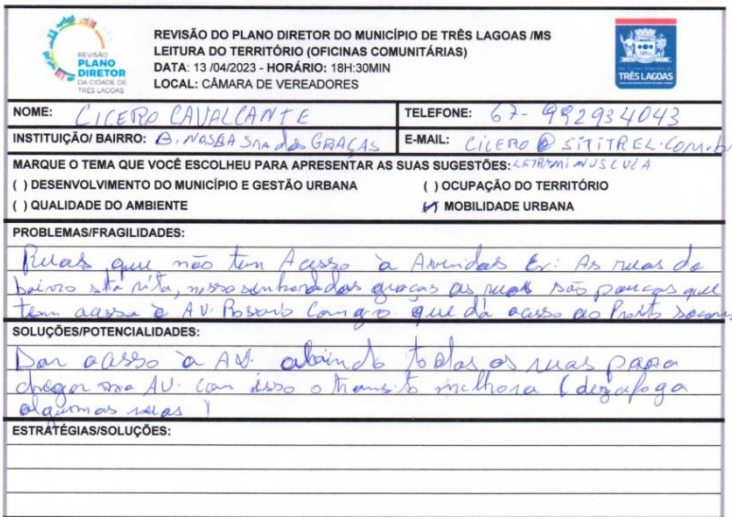 REVISÃO
PLANO
DIRETOR
DA CIDADE DE
TRÊS LAGOAS
REVISÃO DO PLANO DIRETOR DO MUNICÍPIO DE TRÊS LAGOAS /MS
LEITURA DO TERRITÓRIO (OFICINAS COMUNITÁRIAS)
DATA: 13 /04/2023 - HORÁRIO: 18H:30MIN
LOCAL: CÂMARA DE VEREADORES
TRÊS LAGOAS
NOME: CICERO CAVALCANTE
TELEFONE: 67-992934043
INSTITUIÇÃO/ BAIRRO: B. NOSSA SNRA das GRAÇAS
E-MAIL: CICERO@SITITREL.COM.br
MARQUE O TEMA QUE VOCÊ ESCOLHEU PARA APRESENTAR AS SUAS SUGESTÕES: LETRA MINUSCULA
( ) DESENVOLVIMENTO DO MUNICÍPIO E GESTÃO URBANA ( ) OCUPAÇÃO DO TERRITÓRIO
( ) QUALIDADE DO AMBIENTE (✓) MOBILIDADE URBANA
PROBLEMAS/FRAGILIDADES:
Ruas que não tem Acesso à Avenidas Ex: As ruas do
bairro sta rita, nossa senhora das graças as ruas são poucas que
tem acesso à AV. Rosario Congro que dá acesso ao Pronto Socorro
SOLUÇÕES/POTENCIALIDADES:
Dar acesso à AV. abrindo todas as ruas para
chegar na AV. com isso o transito melhora (dezafoga
algumas ruas)
ESTRATÉGIAS/SOLUÇÕES: